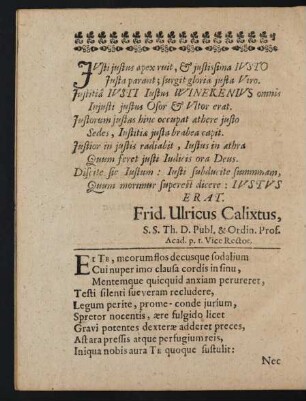 JUsti justus apex ruit, & justissima IUSTO
Justa parant; surgit gloria justa Viro.
Justitiâ IUSTI Iustus WINEKENIUS omnis
Injusti justus Osor & Ultor erat.
Justorum justas hinc occupat æthere justo
Sedes, Iustitiæ justa brabea capit.
Justior in justis radiabit, Iustus in æthra
Quum feret justi Iudicis ora Deus.
Discite sic Iustum: Justi subducite summam,
Quum morimur superest dicere: IUSTUS
ERAT.
Frid. Ulricus Calixtus,
S. S. Th. D. Publ. & Ordin. Prof.
Acad. p. t. Vice Rector.
ET TE, meorum flos decusque sodalium
Cui nuper imo clausa cordis in sinu,
Mentemque quicquid anxiam perureret,
Testi silenti sueveram recludere,
Legum perite, prome-conde jurium,
Spretor nocentis, ære fulgido licet
Gravi potentes dexteræ adderet preces,
Ast ara pressis atque perfugium reis,
Iniqua nobis aura TE quoque sustulit:
Nec